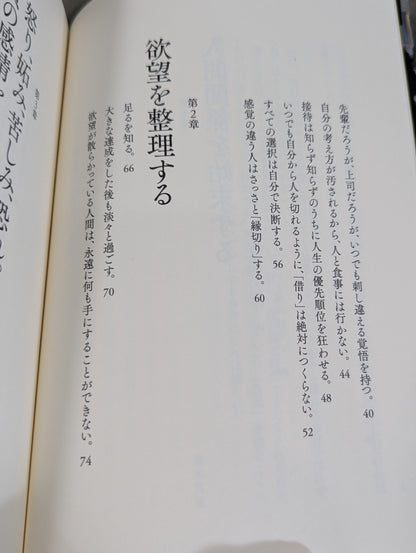 先輩だろうが、上司だろうが、いつでも刺し違える覚悟を持つ。 40
自分の考え方が汚されるから、人と食事には行かない。 44
接待は知らず知らずのうちに人生の優先順位を狂わせる。 48
いつでも自分から人を切れるように、「借り」は絶対につくらない。 52
すべての選択は自分で決断する。 56
感覚の違う人はさっさと「縁切り」する。 60
第2章
欲望を整理する
足るを知る。 66
大きな達成をした後も淡々と過ごす。 70
欲望が散らかっている人間は、永遠に何も手にすることができない。 74
第3章
怒り、妬み、苦しみ、恐れ。
の感情